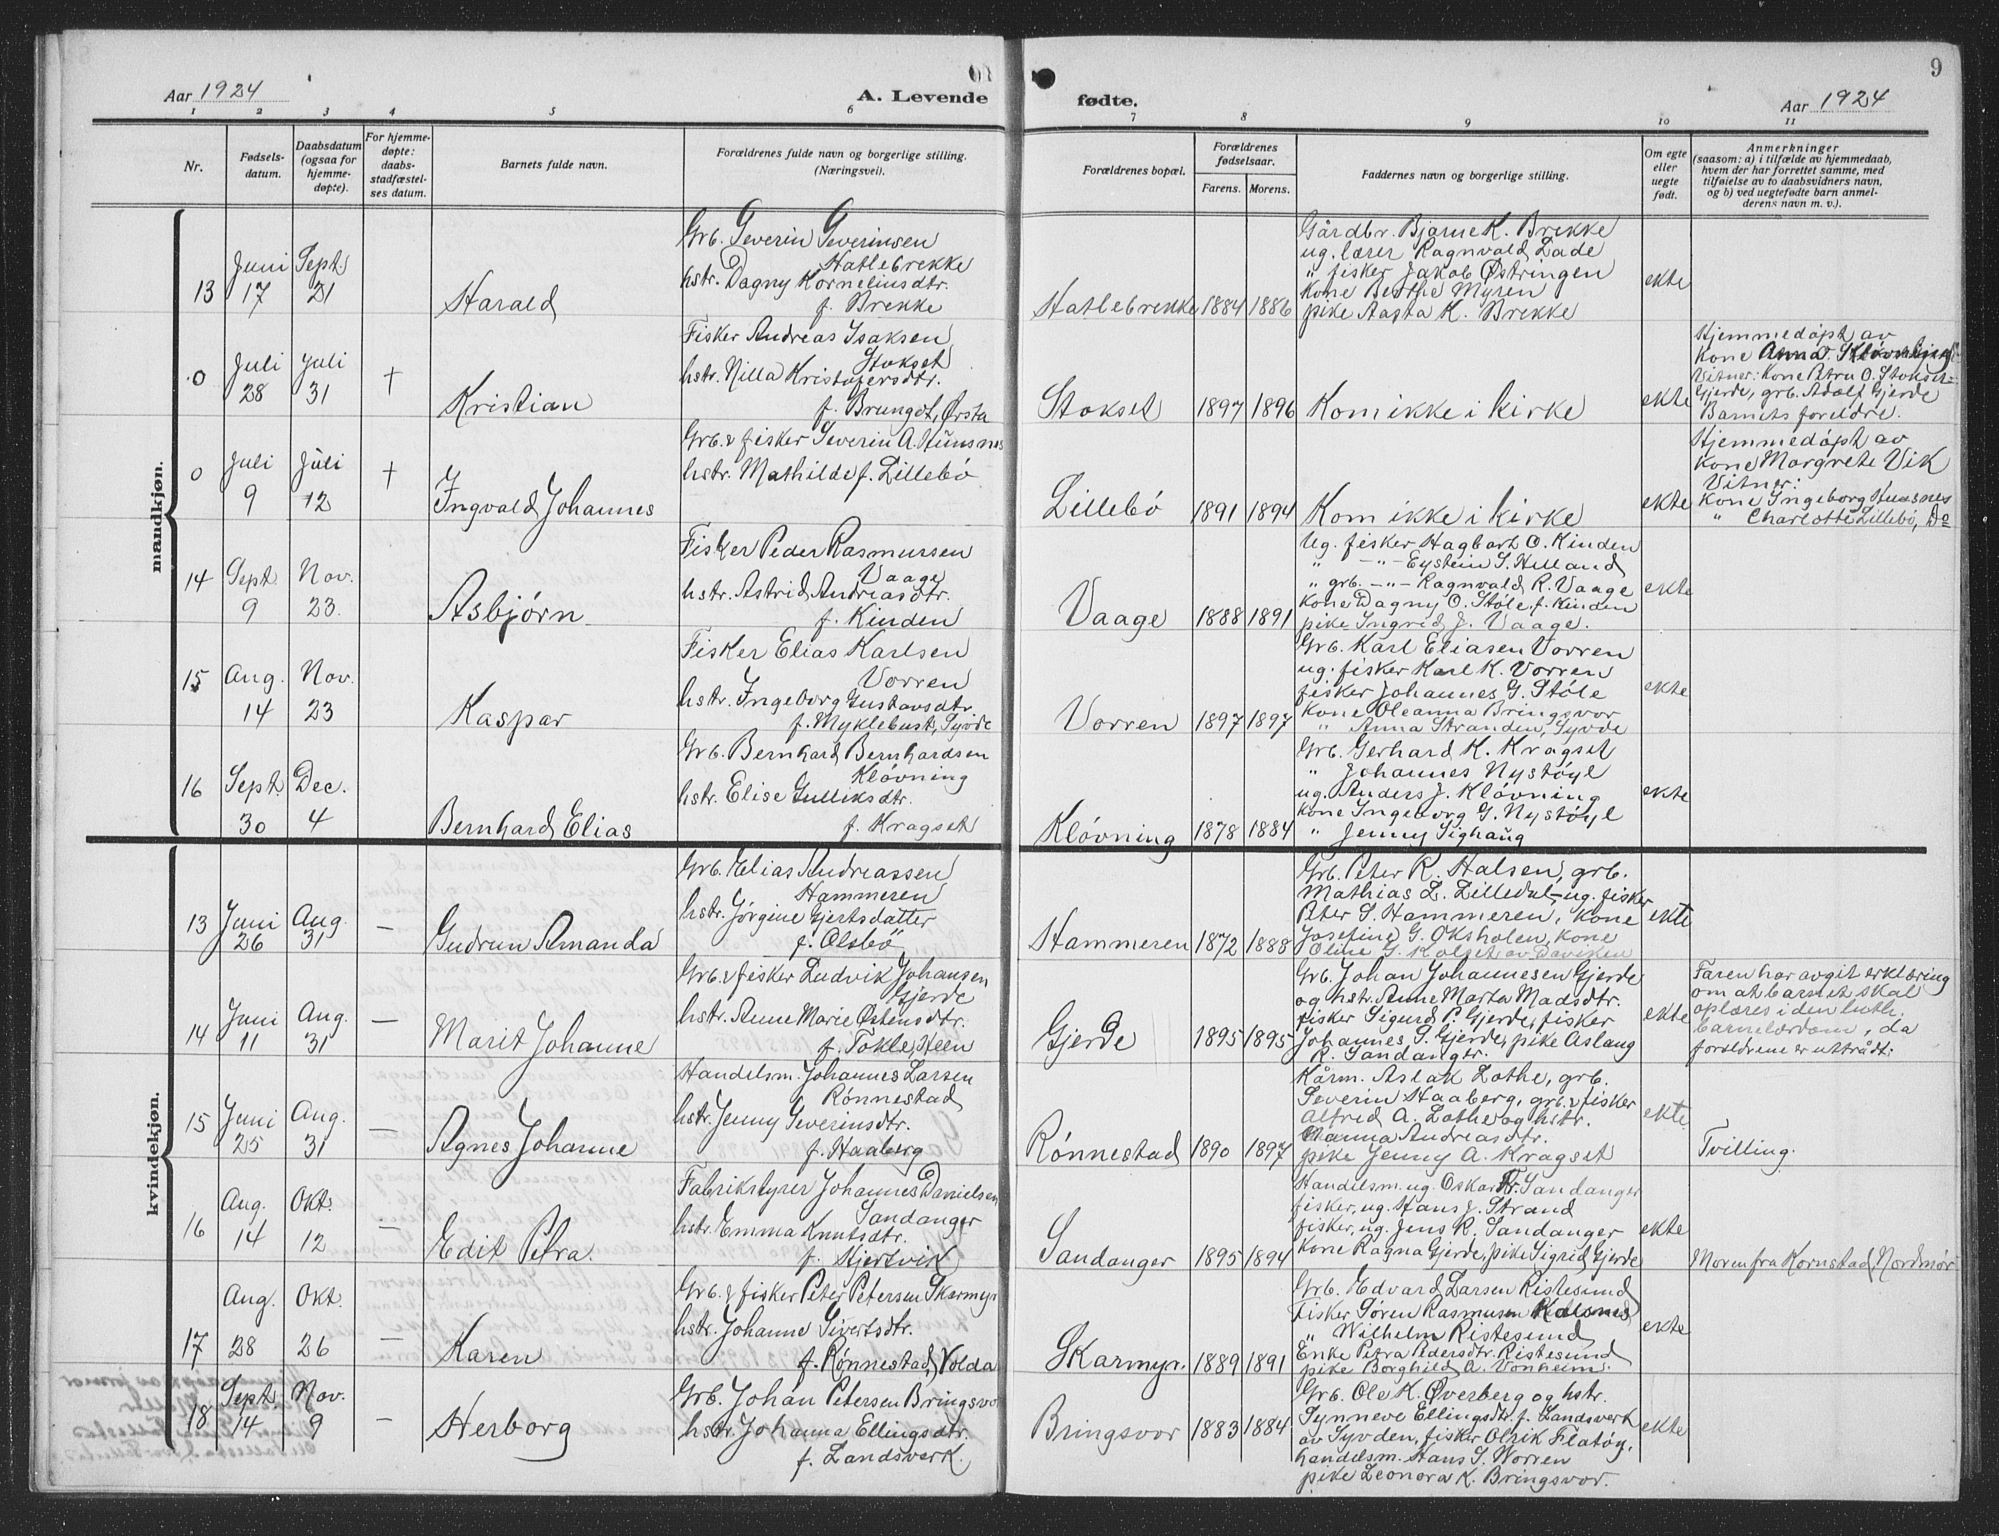 9
Aar 1924
A. Levende fødte.
Aar 1924
1 2 3 4 5 6 7 8 9 10 11
Nr.
Fødsels-
datum.
Daabsdatum
(ogsaa for
hjemme-
døpte).
For hjemme-
døpte:
daabs-
stadfæstel-
ses datum.
Barnets fulde navn.
Forældrenes fulde navn og borgerlige stilling.
(Næringsvei).
Forældrenes bopæl.
Forældrenes
fødselsaar.
Farens. Morens.
Faddernes navn og borgerlige stilling.
Om egte
eller
uegte
født.
Anmerkninger
(saasom: a) i tilfælde av hjemmedaab,
hvem der har forrettet samme, med
tilføielse av to daabsvidners navn,
og b) ved uegtefødte barn anmel-
derens navn m. v.).
mandkjøn.
13
Juni
17
Sept
21
Harald
Grb. Severin Severinsen
Hatlebrekke
hstr. Dagny Korneliusdtr.
f. Brekke
Hatlebrekke 1884 1886
Gårdbr. Bjarne K. Brekke
ug. lærer Ragnvald Lade
" fisker Jakob Østringen
Kone Berthe Myren
pike Aasta K. Brekke
ekte
0
Juli
28
Juli
31
+
Kristian
Fisker Andreas Isaksen
Stokset
hstr. Nilla Kristofersdtr.
f. Brungot, Ørsta
Stokset 1897 1896
Kom ikke i kirke
ekte
Hjemmedøpt av
Kone Anna Kløvning
Vitner: Kone Petra O. Stokset-
Gjerde, grb. Adolf Gjerde
Barnets foreldre.
0
Juli
9
Juli
12
+
Ingvald Johannes
Grb. & fisker Severin A. Hunsnes
hstr. Mathilde f. Lillebø
Lillebø 1891 1894
Kom ikke i kirke
ekte
Hjemmedøpt av
Kone Margrete Vik
Vitner:
Kone Ingeborg Hunsnes
" Charlotte Lillebø, Do
14
Sept.
9
Nov.
23.
Asbjørn
Fisker Peder Rasmussen
Vaage
hstr. Astrid Andreasdtr.
f. Kinden
Vaage 1888 1891
Ug. fisker Hagbart O. Kinden
" -"- Eystein S. Helland
" grb. -"- Ragnvald R. Vaage
Kone Dagny O. Støle, f. Kinden
pike Ingrid J. Vaage.
ekte
15
Aug.
14
Nov.
23
Kaspar
Fisker Elias Karlsen
Vorren
hstr. Ingeborg Gustavsdtr.
f. Myklebust, Syvde
Vorren 1897 1897
Grb. Karl Eliasen Vorren
ug. fisker Karl K. Vorren
fisker Johannes G. Støle
Kone Oleanna Bringsvor
" Anna Stranden, Syvde
ekte
16
Sept.
30
Dec.
4
Bernhard Elias
Grb. Bernhard Bernhardsen
Kløvning
hstr. Elise Gulliksdtr.
f. Kragset
Kløvning 1878 1884
Grb. Gerhard K. Kragset
" Johannes Nystøyl
ug. Anders J. Kløvning
Kone Ingeborg G. Nystøyl
" Jenny Sighaug
ekte
kvindekjøn.
13
Juni
26
Aug.
31
—
Gudrun Amanda
Grb. Elias Andreassen
Hammeren
hstr. Jørgine Gjertsdatter
f. Olsbø
Hammeren 1872 1888
Grb. Peter R. Halsen, grb.
Mathias L. Lilledal, ug. fisker
Peter S. Hammeren, Kone
Josefine G. Oksholen, Kone
Oline G. Kolset av Daviken
ekte
14
Juni
11
Aug.
31
—
Marit Johanne
Grb. & fisker Ludvik Johansen
Gjerde
hstr. Anne Marie Østensdtr.
f. Tokle, Heen
Gjerde 1895 1895
Grb. Johan Johannesen Gjerde
og hstr. Anne Marta Madsdtr.
fisker Sigurd P. Gjerde, fisker
Johannes S. Gjerde, pike Aslaug
R. Sandanger.
ekte
Faren har avgit erklæring
om at barnet skal
oplæres i den luth.
barnelærdom, da
foreldrene er uttrådt.
15
Juni
25
Aug.
31
—
Agnes Johanne
Handelsm. Johannes Larsen
Rønnestad
hstr. Jenny Severinsdtr.
f. Haaberg
Rønnestad 1890 1897
Kårm. Aslak Lothe, grb.
Severin Haaberg, grb. & fisker
Alfred A. Lothe og hstr.
Nanna Andreasdtr.
pike Jenny A. Kragset
ekte
Tvilling.
16
Aug.
14
Okt.
12
—
Edit Petra.
Fabrikstyrer Johannes Danielsen
Sandanger
hstr. Emma Knutsdtr.
f. Hjertvik
Sandanger 1895 1894
Handelsm. ug. Oskar Fr. Sandanger
fisker, ug. Hans J. Strand
fisker, ug. Jens R. Sandanger
Kone Ragna Gjerde, pike Sigrid Gjerde
ekte
Moren fra Kornstad, Nordmør
17
Aug.
28
Okt.
26
—
Karen
Grb. & fisker Peter Petersen Skarmyr
hstr. Johanne Sivertsdtr.
f. Rønnestad, Volda
Skarmyr. 1889 1891
Grb. Edvard Larsen Ristesund
Fisker Søren Rasmusen
" Wilhelm Ristesund
Enke Petra Pedersdtr. Ristesund
pike Borghild A. Vonheim.
ekte
18
Sept.
14
Nov.
9
—
Herborg
Grb. Johan Petersen Bringsvor
hstr. Johanna Ellingsdtr.
f. Landsverk.
Bringsvor 1883 1884
Grb. Ole K. Øverberg og hstr.
Synneve Ellingsdtr. f. Landsverk
av Syvden, fisker Olrik Flatøy,
handelsm. Hans S. Worren
pike Leonora K. Bringsvor.
ekte